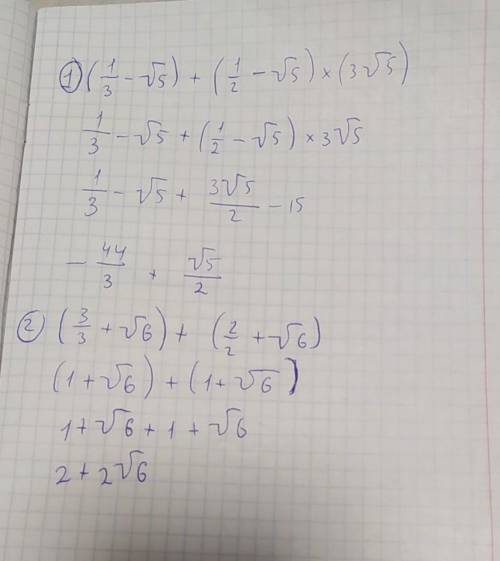 1) (1/3 - √5) + (1/2 - √5) × (3√5)
1/3 - √5 + (1/2 - √5) × 3√5
1/3 - √5 + 3√5/2 - 15
- 44/3 + √5/2
2) (3/3 + √6) + (2/2 + √6)
(1 + √6) + (1 + √6)
1 + √6 + 1 + √6
2 + 2√6